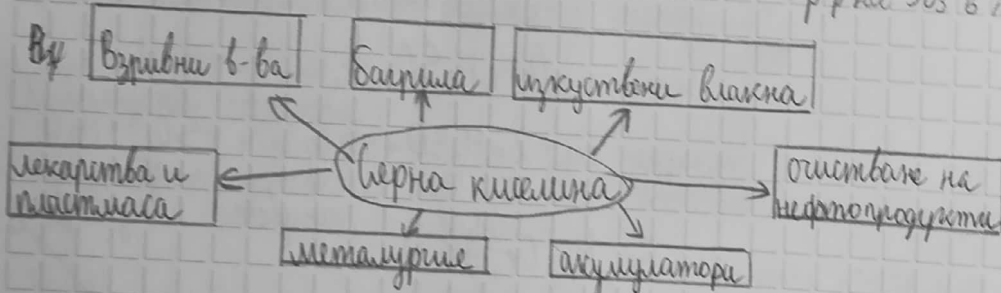 В/ Взривни в-ва
багрила
изкуствени влакна
лекарства и
пластмаса
Сярна киселина
очистване на
нефтопродукти
металургия
акумулатори